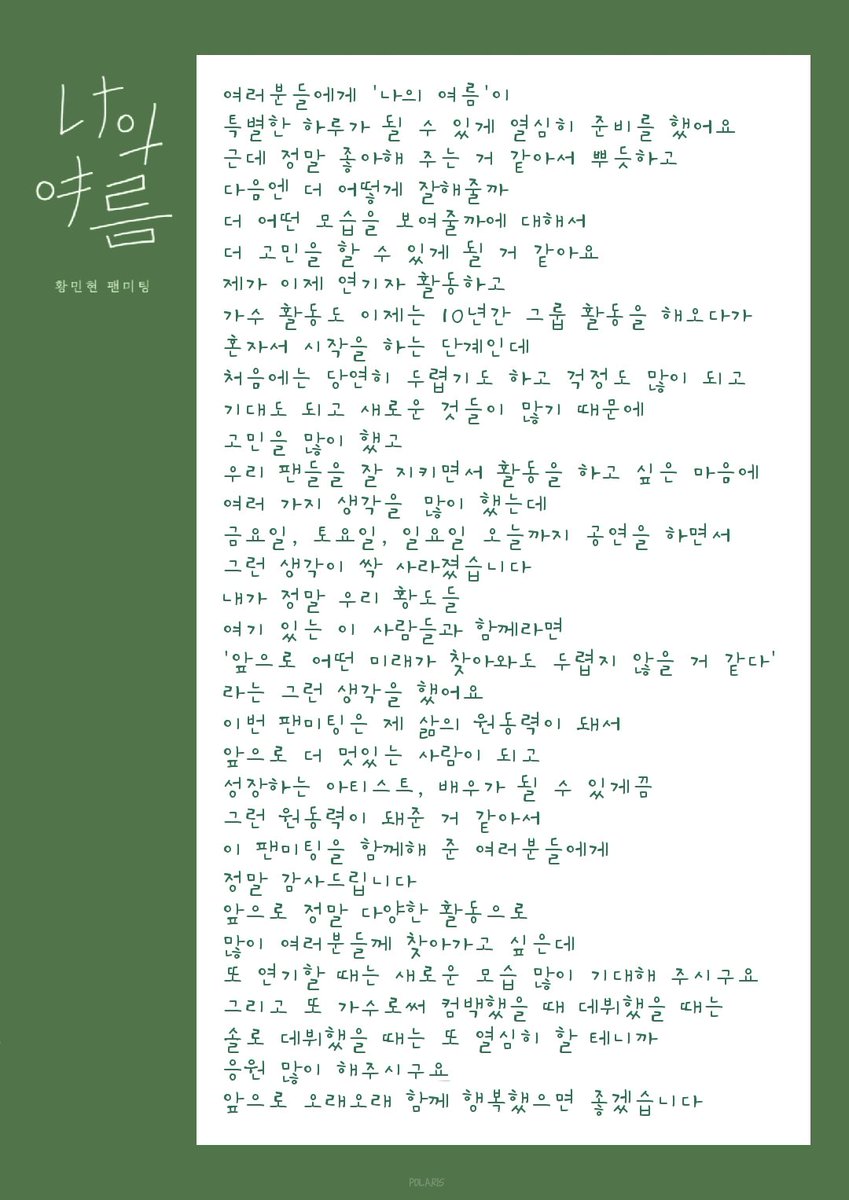 나의
여름
황민현 팬미팅
여러분들에게 '나의 여름'이
특별한 하루가 될 수 있게 열심히 준비를 했어요
근데 정말 좋아해 주는 거 같아서 뿌듯하고
다음엔 더 어떻게 잘해줄까
더 어떤 모습을 보여줄까에 대해서
더 고민을 할 수 있게 될 거 같아요
제가 이제 연기자 활동하고
가수 활동도 이제는 10년간 그룹 활동을 해오다가
혼자서 시작을 하는 단계인데
처음에는 당연히 두렵기도 하고 걱정도 많이 되고
기대도 되고 새로운 것들이 많기 때문에
고민을 많이 했고
우리 팬들을 잘 지키면서 활동을 하고 싶은 마음에
여러 가지 생각을 많이 했는데
금요일, 토요일, 일요일 오늘까지 공연을 하면서
그런 생각이 싹 사라졌습니다
내가 정말 우리 황도들
여기 있는 이 사람들과 함께라면
'앞으로 어떤 미래가 찾아와도 두렵지 않을 거 같다'
라는 그런 생각을 했어요
이번 팬미팅은 제 삶의 원동력이 돼서
앞으로 더 멋있는 사람이 되고
성장하는 아티스트, 배우가 될 수 있게끔
그런 원동력이 돼준 거 같아서
이 팬미팅을 함께해 준 여러분들에게
정말 감사드립니다
앞으로 정말 다양한 활동으로
많이 여러분들께 찾아가고 싶은데
또 연기할 때는 새로운 모습 많이 기대해 주시구요
그리고 또 가수로써 컴백했을 때 데뷔했을 때는
솔로 데뷔했을 때는 또 열심히 할 테니까
응원 많이 해주시구요
앞으로 오래오래 함께 행복했으면 좋겠습니다
POLARIS